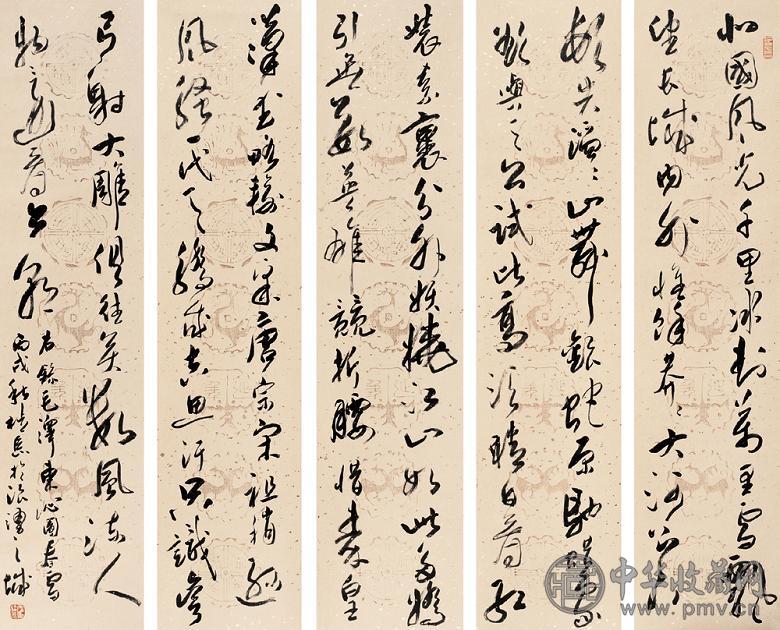 北國風光千里冰封萬里雪飄
望長城內外惟餘莽々大河上下
頓失滔々山舞銀蛇原馳蠟象
欲與天公試比高須晴日看紅
裝素裹分外妖嬈江山如此多嬌
引無數英雄競折腰惜秦皇
漢武略輸文采唐宗宋祖稍遜
風騷一代天驕成吉思汗只識彎
弓射大雕俱往矣數風流人
物還看今朝
右錄毛澤東沁園春雪
丙戌秋於之城
中华收藏网
www.pmv.cn